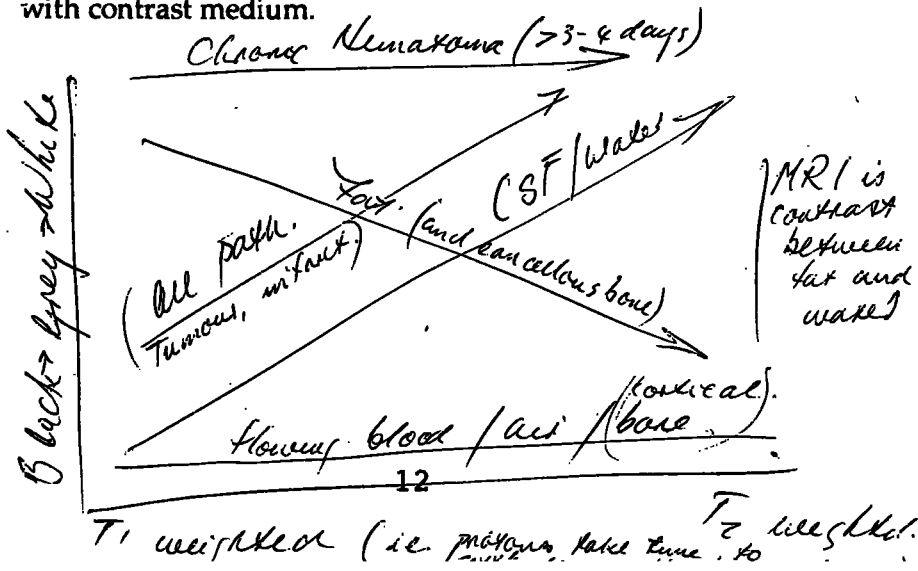 with contrast medium.
Chronic Hematoma (>3-4 days)
Black → Grey → White
Fat.
(and cancellous bone)
CSF / water
(all path.
Tumours, infarct.)
MRI is
contrast
between
fat and
water
flowing blood / air / (cortical).
bone
12
T1 weighted (i.e. protons take time to
T2 weighted.